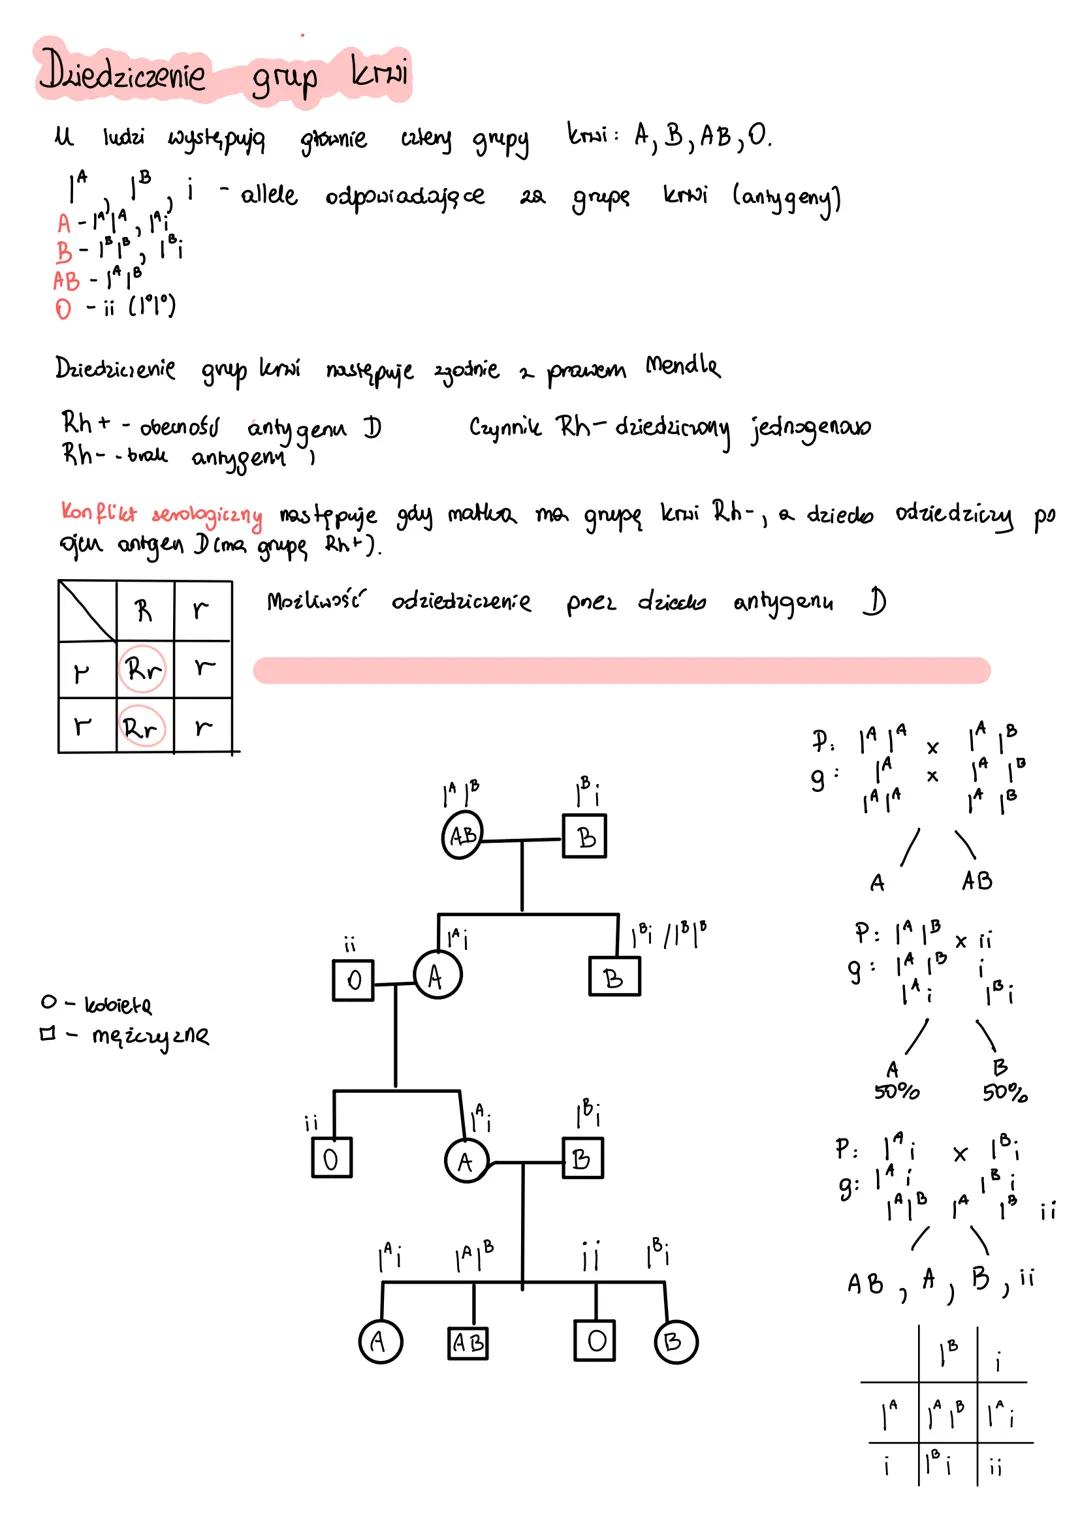 Dziedziczenie grup krwi
U ludzi występują głównie cztery grupy krwi: A, B, AB, O.
I^A, I^B, i - allele odpowiadające za grupę krwi (antygeny)
A - I^A I^A, I^A i
B - I^B I^B, I^B i
AB - I^A I^B
O - ii (I^o I^o)
Dziedziczenie grup krwi następuje zgodnie z prawem Mendla
Rh+ - obecność antygenu D
Rh- - brak antygenu
Czynnik Rh - dziedziczony jednogenowo
Konflikt serologiczny następuje gdy matka ma grupę krwi Rh-, a dziecko odziedziczy po
ojcu antgen D (ma grupę Rh+).
R r
r Rr r
r Rr r
Możliwość odziedziczenie przez dziecko antygenu D
P: I^A I^A x I^A I^B
g: I^A x I^A I^B
I^A I^A I^A I^B
A AB
P: I^A I^B x ii
g: I^A I^B i
I^A i I^B i
A B
50% 50%
P: I^A i x I^B i
g: I^A i I^B i
I^A I^B I^A I^B ii
AB, A, B, ii
I^B i
I^A I^A I^B I^A i
i I^B i ii
O - kobieta
□ - mężczyzna
I^A I^B I^B i
AB B
ii I^A i I^B i / I^B I^B
O A B
ii I^A i I^B i
O A B
I^A i I^A I^B ii I^B i
A AB O B